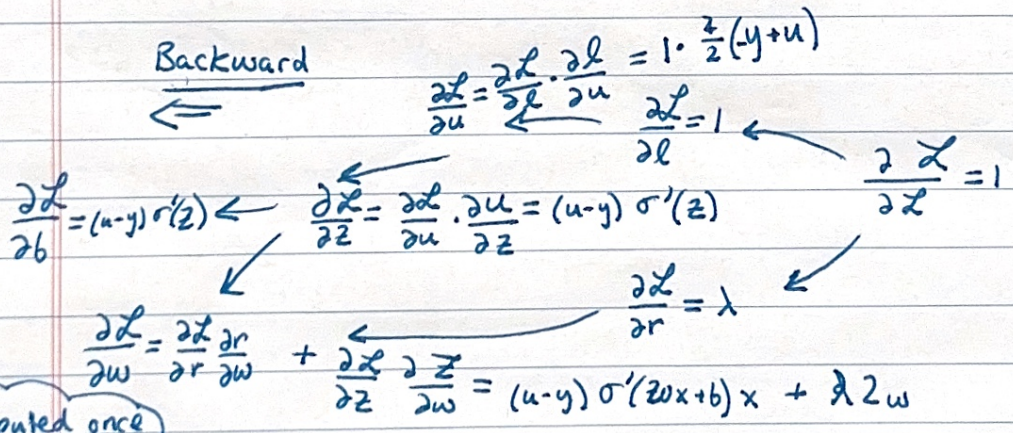 Backward
∂ℒ/∂u = ∂ℒ/∂l · ∂l/∂u = 1 · 2/2 (-y+u)
⇐
∂ℒ/∂l = 1
∂ℒ/∂ℒ = 1
∂ℒ/∂b = (u-y) σ'(z) ← ∂ℒ/∂z = ∂ℒ/∂u · ∂u/∂z = (u-y) σ'(z)
∂ℒ/∂r = λ
∂ℒ/∂w = ∂ℒ/∂r ∂r/∂w + ∂ℒ/∂z ∂z/∂w = (u-y) σ'(wx+b) x + λ2w
once